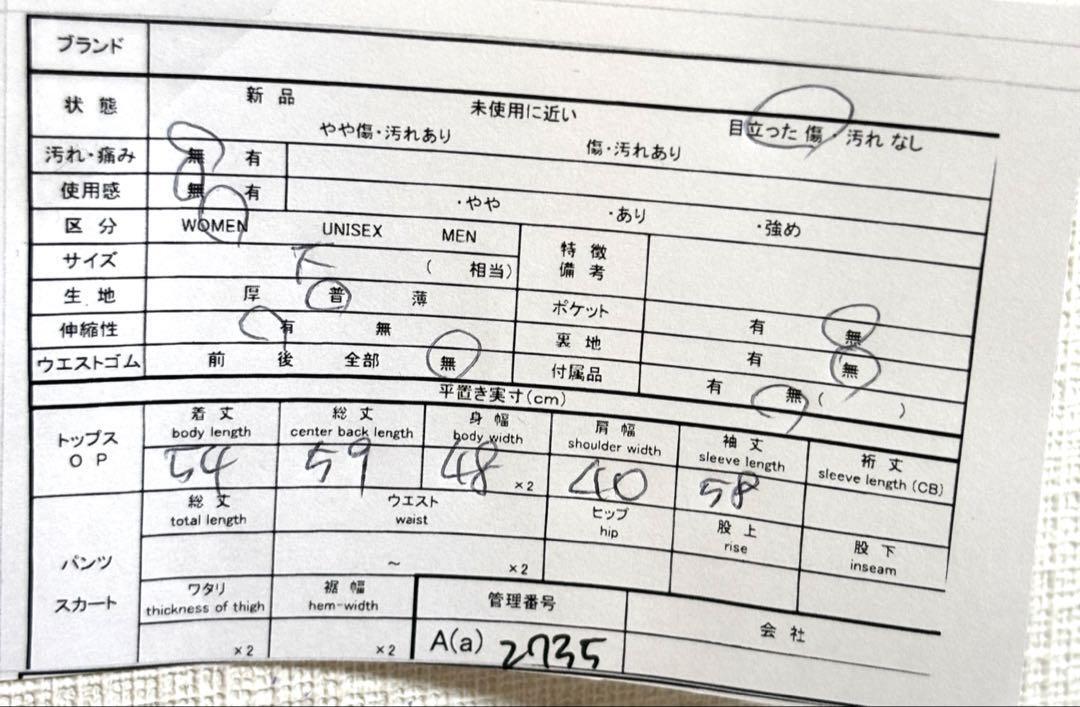 ブランド
状態 新品 未使用に近い 目立った傷・汚れなし
やや傷・汚れあり 傷・汚れあり
汚れ・痛み 無 有
使用感 無 有 ・やや ・あり ・強め
区分 WOMEN UNISEX MEN 特徴備考
サイズ ( 相当)
生地 厚 普 薄 ポケット 有 無
伸縮性 有 無 裏地 有 無
ウエストゴム 前 後 全部 無 付属品 有 無 ( )
平置き実寸(cm)
トップス OP
着丈 総丈 身幅 肩幅 袖丈 裄丈
body length center back length body width shoulder width sleeve length sleeve length (CB)
54 59 48 ×2 40 58
パンツ スカート
総丈 ウエスト ヒップ 股上 股下
total length waist hip rise inseam
~ ×2
ワタリ 裾幅 管理番号 会社
thickness of thigh hem-width
×2 ×2 A(a) 2735